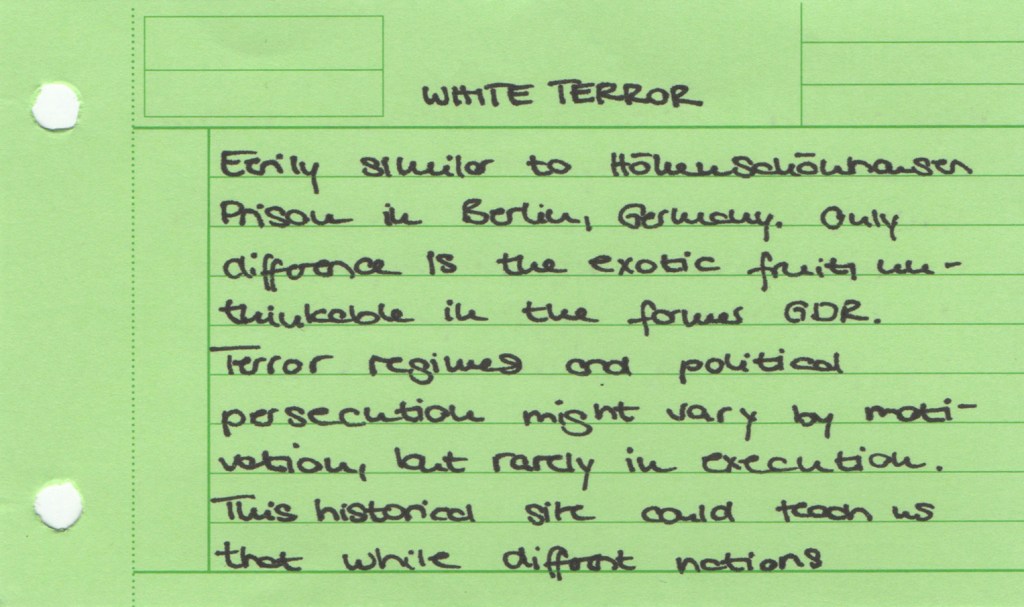 WHITE TERROR
Eerily similar to Höhenschönhausen
Prison in Berlin, Germany. Only
difference is the exotic fruit, un-
thinkable in the former GDR.
Terror regimes and political
persecution might vary by moti-
vation, but rarely in execution.
This historical site could teach us
that while different nations